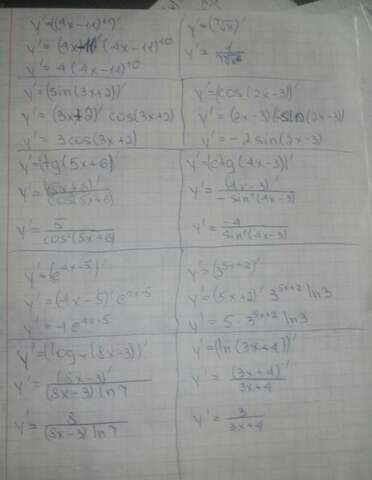 y'=((4x-11)¹⁰)'
y'=(4x-11)'(4x-11)¹⁰
y'=4(4x-11)¹⁰
y'=(sin(3x+2))'
y'=(3x+2)' cos(3x+2)
y'=3cos(3x+2)
y'=(cos(2x-3))'
y'=(2x-3)'(-sin(2x-3))
y'=-2sin(2x-3)
y'=(tg(5x+6))'
y'=(5x+6)'/cos²(5x+6)
y'=5/cos²(5x+6)
y'=(ctg(4x-3))'
y'=(4x-3)'/-sin²(4x-3)
y'=-4/sin²(4x-3)
y'=(e⁴ˣ⁻⁵)'
y'=(4x-5)' e⁴ˣ⁻⁵
y'=4e⁴ˣ⁻⁵
y'=(3⁵ˣ⁺²)'
y'=(5x+2)' 3⁵ˣ⁺² ln3
y'=5·3⁵ˣ⁺² ln3
y'=(log₇(8x-3))'
y'=(8x-3)'/(8x-3)ln7
y'=8/(8x-3)ln7
y'=(ln(3x+4))'
y'=(3x+4)'/3x+4
y'=3/3x+4